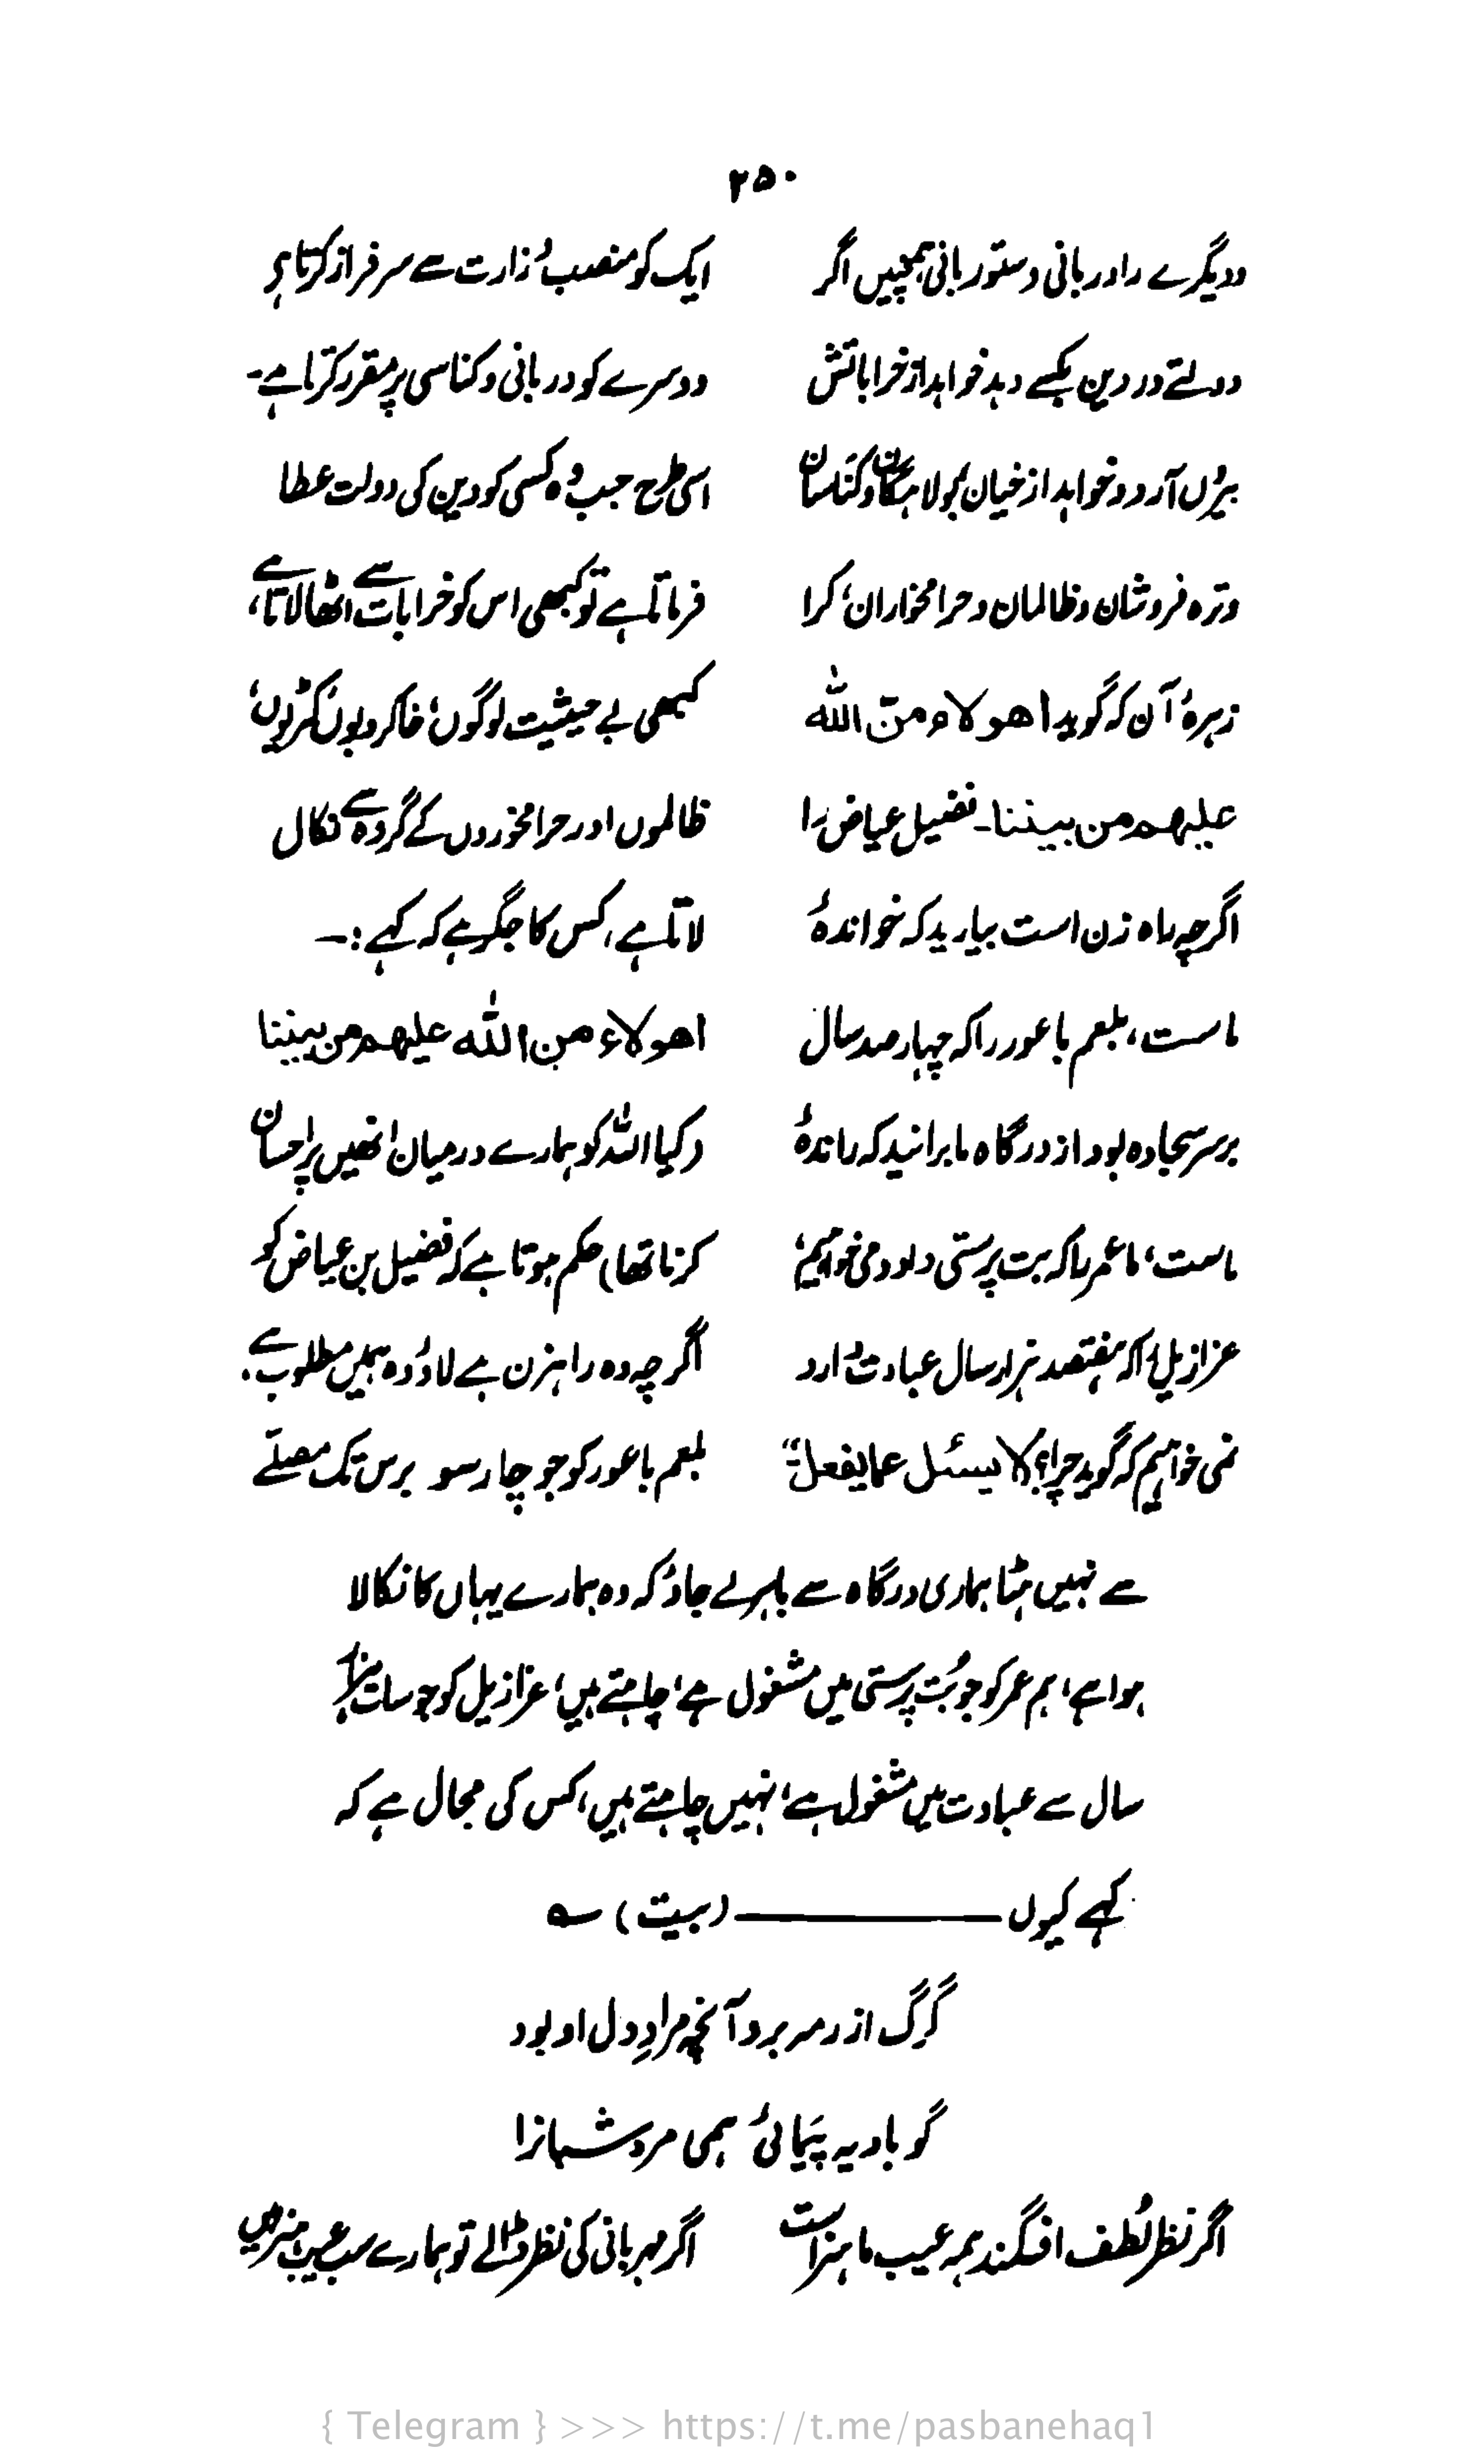 ۲۵۰
ودیگرے را دربانی و ستوربانی ہمچنیں اگر
دولتے در دین بکسے دہد خواہد از خراباتش
بیروں آرد و خواہد از خیان جولاہگان و کناسان
وترہ فروشان و ظالمان و حرامخواران، کرا
زہرۂ آن کہ گوید اھولاء منّ اللہ
علیھم من بیننا۔ فضیل عیاض را
اگرچہ راہ زن است بیارید کہ خواندۂ
ماست، بلعم باعور را کہ چہار صد سال
برسر سجادہ بود از درگاہ ما برانید کہ راندۂ
ماست، ما عمر را کہ بت پرستی دارد می خواہیم،
عزازیل را کہ ہفتصد ہزار سال عبادت دارد
نمی خواہیم کہ گوید چرا؟ لا یسئل عما یفعلؔ“
ایک کو منصب وزارت سے سرفراز کرتا ہے
دوسرے کو دربانی و کناسی پر مقرر کرتا ہے۔
اسی طرح جب وہ کسی کو دین کی دولت عطا
فرماتا ہے تو کبھی اس کو خرابات سے اٹھا لاتا ہے،
کبھی بے حیثیت لوگوں، خاکروبوں،
ظالموں اور حرامخوروں کے گروہ سے نکال
لاتا ہے، کس کا جگر ہے کہ کہے :۔
اھولاء من اللہ علیھم من بیننا
(کیا اللہ کو ہمارے درمیان انھیں پر احسان
کرنا تھا) حکم ہوتا ہے کہ فضیل بن عیاض کو
اگرچہ وہ راہزن ہے لاؤ وہ ہمیں مطلوب ہے.
بلعم باعور کو جو چار سو برس تک مصلّے
سے نہیں ہٹا ہماری درگاہ سے باہر لے جاؤ کہ وہ ہمارے یہاں کا نکالا
ہوا ہے، ہم عمر کو جو بُت پرستی میں مشغول ہے، چاہتے ہیں، عزازیل کو جو سات ہزار
سال سے عبادت میں مشغول ہے، نہیں چاہتے ہیں، کس کی مجال ہے کہ
کہے کیوں ——— (بیت) ؎
گرگ از رمہ برد آنچہ مرادِ دل او بود
گو بادیہ پیمائیٔ ہمی مرد شبانرا
اگر نظر لُطف افگند ہمہ عیب ما ہنر است
اگر مہربانی کی نظر ڈالے تو ہمارے سب عیب ہنر ہیں
{ Telegram } >>> https://t.me/pasbanehaq1